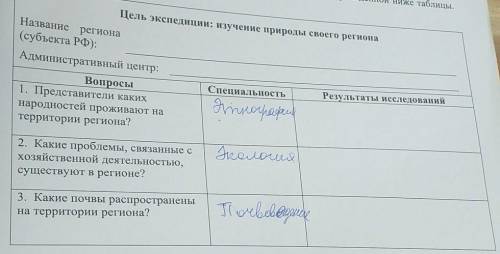 ниже таблицы.
Цель экспедиции: изучение природы своего региона
Название региона
(субъекта РФ):
Административный центр:
Вопросы
Специальность
Результаты исследований
1. Представители каких
народностей проживают на
территории региона?
Этнография
2. Какие проблемы, связанные с
хозяйственной деятельностью,
существуют в регионе?
Экология
3. Какие почвы распространены
на территории региона?
Почвоведение